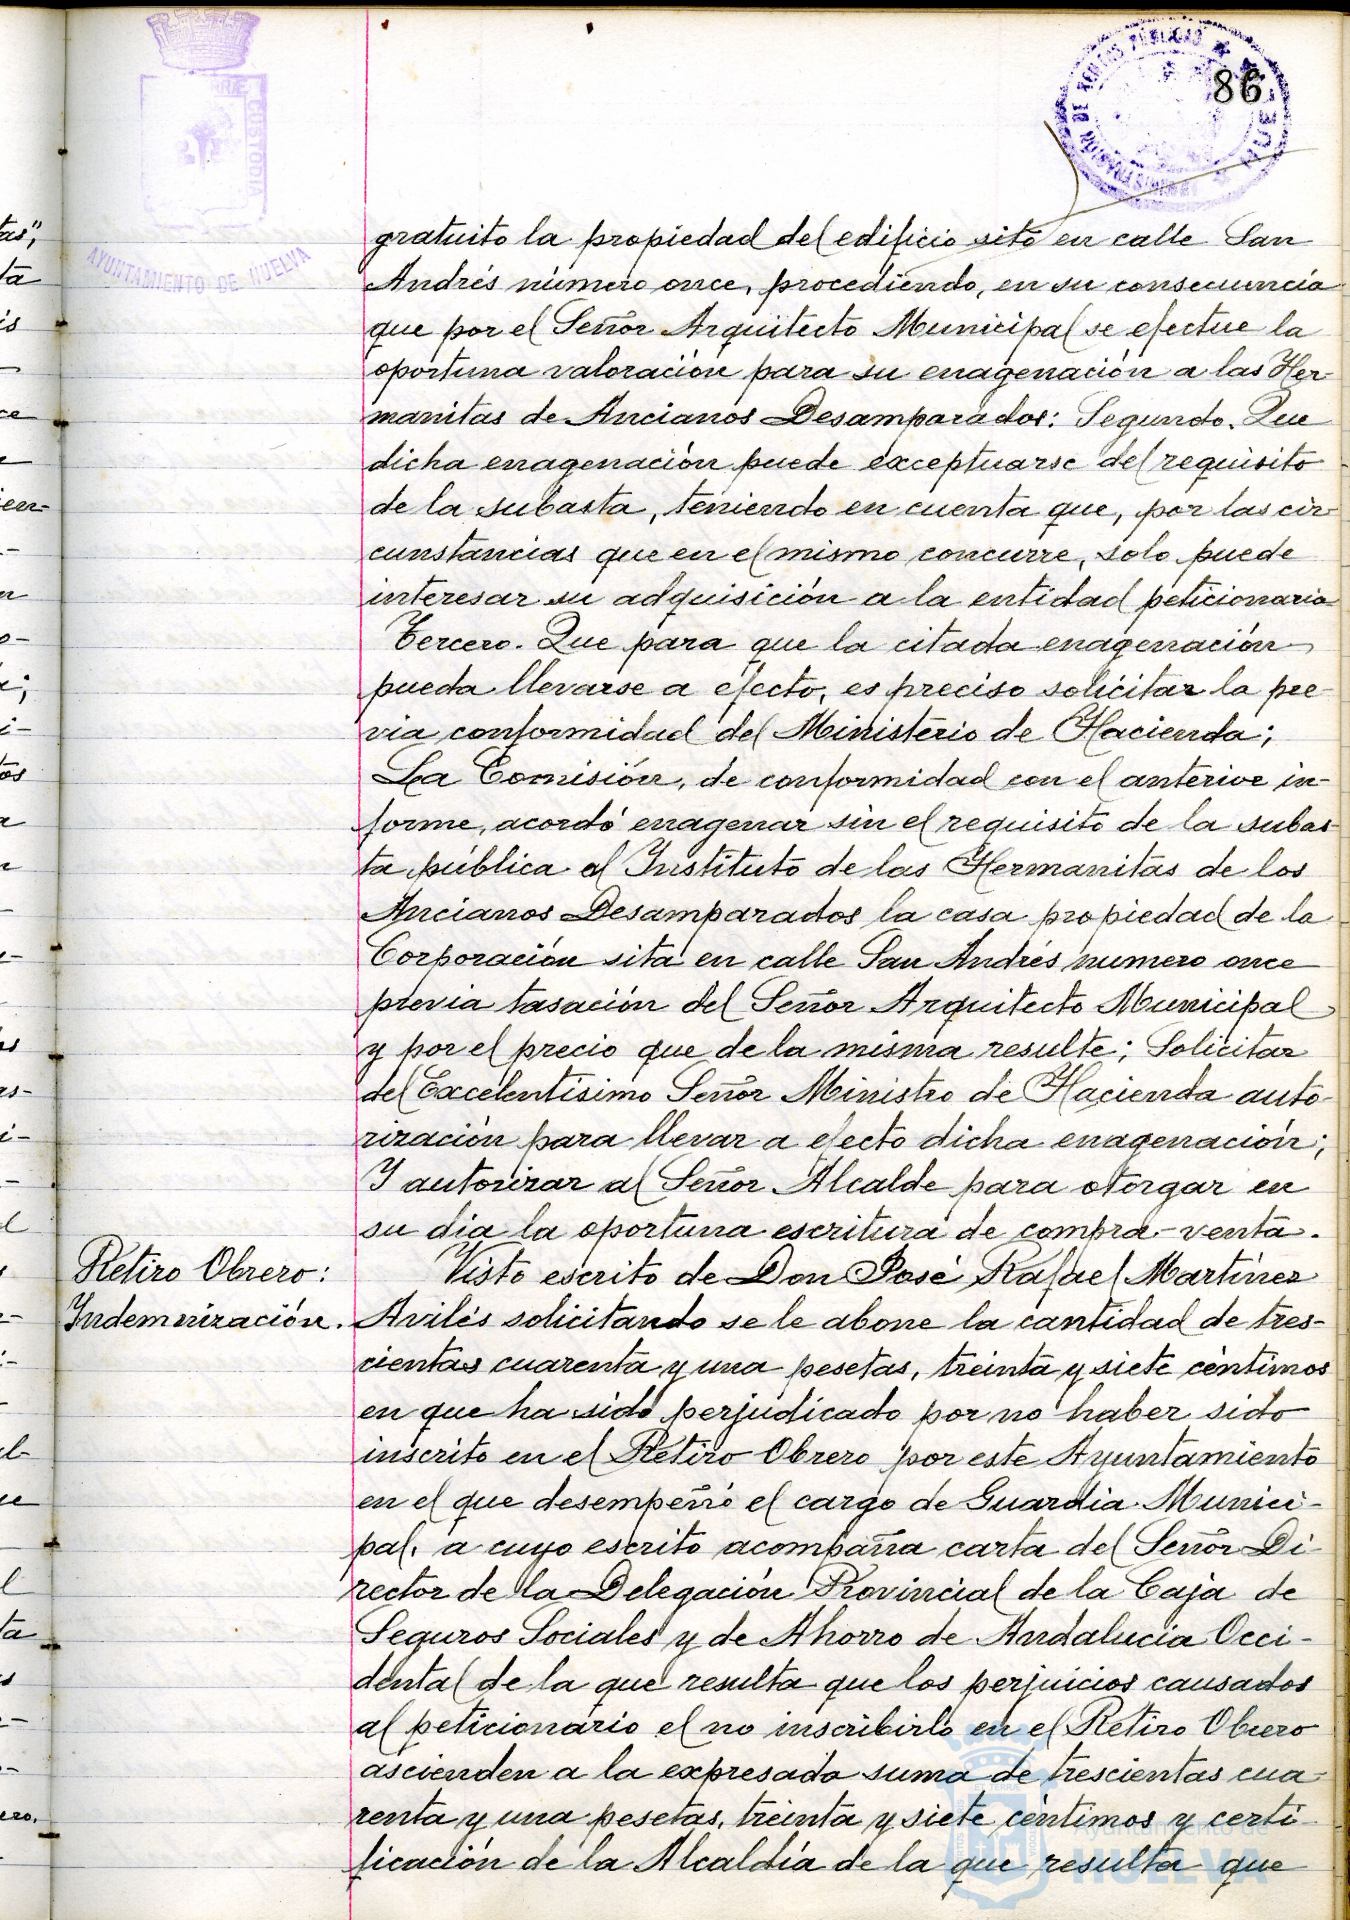 86
AYUNTAMIENTO DE HUELVA
gratuito la propiedad del edificio sito en calle San
Andrés número once, procediendo, en su consecuencia
que por el Señor Arquitecto Municipal se efectue la
oportuna valoración para su enagenación a las Her-
manitas de Ancianos Desamparados: Segundo. Que
dicha enagenación puede exceptuarse del requisito
de la subasta, teniendo en cuenta que, por las cir-
cunstancias que en el mismo concurre, solo puede
interesar su adquisición a la entidad peticionaria
Tercero. Que para que la citada enagenación
pueda llevarse a efecto, es preciso solicitar la pre-
via conformidad del Ministerio de Hacienda;
La Comisión, de conformidad con el anterior in-
forme, acordó enagenar sin el requisito de la subas-
ta pública al Instituto de las Hermanitas de los
Ancianos Desamparados la casa propiedad de la
Corporación sita en calle San Andrés numero once
previa tasación del Señor Arquitecto Municipal
y por el precio que de la misma resulte; Solicitar
del Excelentisimo Señor Ministro de Hacienda auto-
rización para llevar a efecto dicha enagenación;
Y autorizar al Señor Alcalde para otorgar en
su dia la oportuna escritura de compra-venta.
Retiro Obrero:
Indemnización.
Visto escrito de Don José Rafael Martínez
Avilés solicitando se le abone la cantidad de tres-
cientas cuarenta y una pesetas, treinta y siete céntimos
en que ha sido perjudicado por no haber sido
inscrito en el Retiro Obrero por este Ayuntamiento
en el que desempeñó el cargo de Guardia Munici-
pal, a cuyo escrito acompaña carta del Señor Di-
rector de la Delegación Provincial de la Caja de
Seguros Sociales y de Ahorro de Andalucía Occi-
dental de la que resulta que los perjuicios causados
al peticionario el no inscribirlo en el Retiro Obrero
ascienden a la expresada suma de trescientas cua-
renta y una pesetas, treinta y siete céntimos y certi-
ficación de la Alcaldía de la que resulta que
Ayuntamiento de
HUELVA